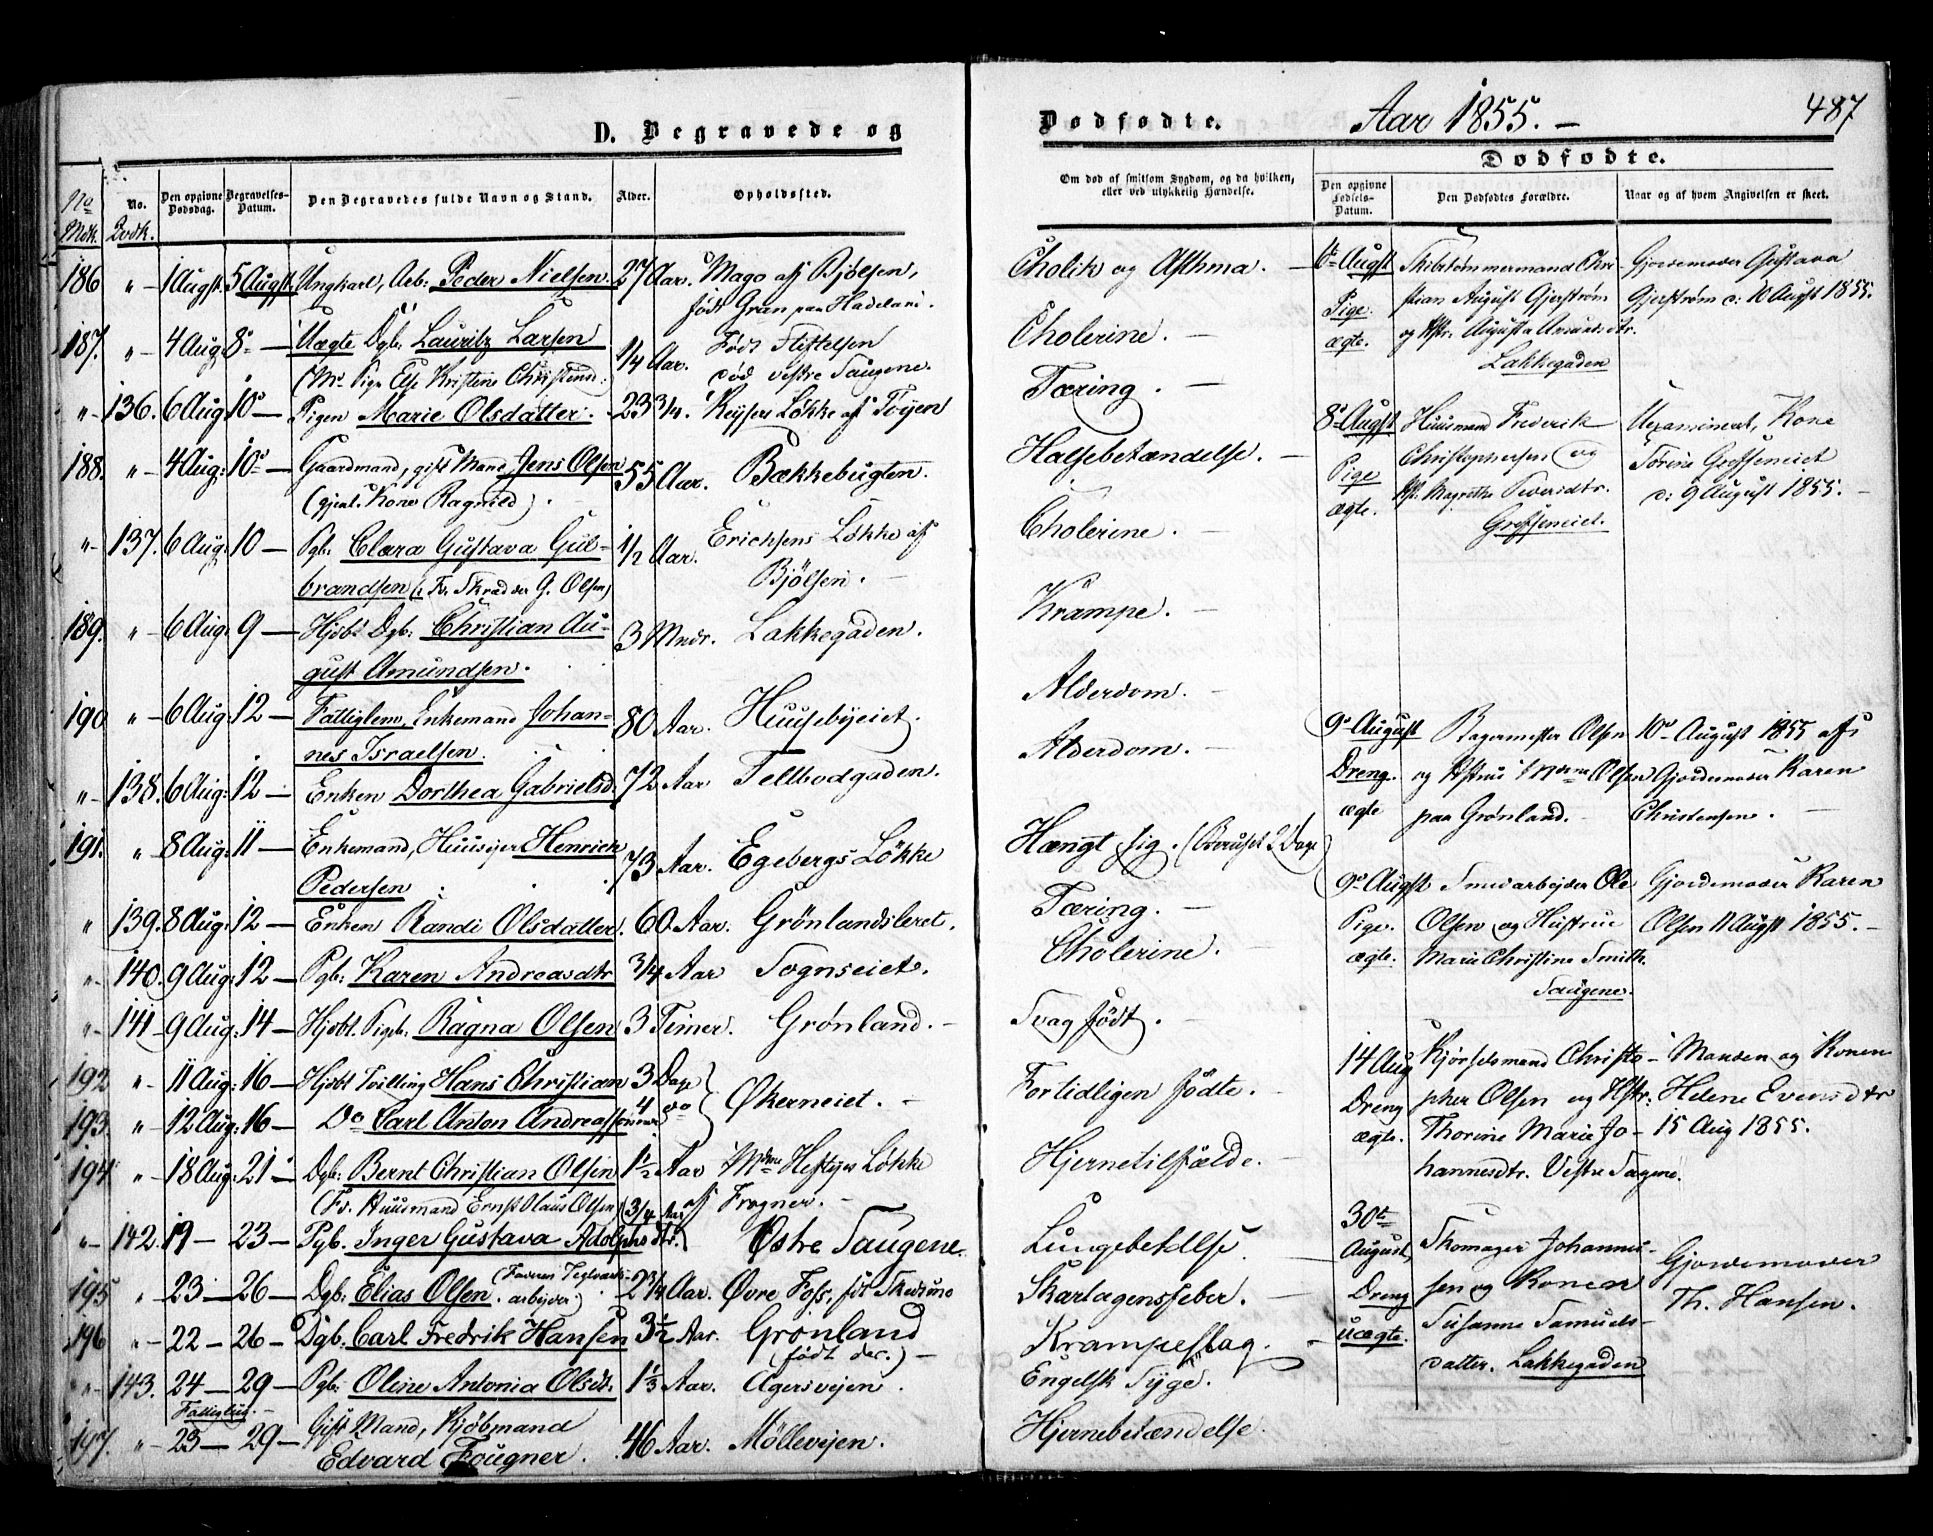 D. Begravede og
No Mdk. | No. Qvdk. | Den opgivne Dødsdag. | Begravelses-Datum. | Den Begravedes fulde Navn og Stand. | Alder. | Opholdssted.
186 " 1 Augst. 5 Augst. Ungkarl, Arb: Peder Nielsen. 27 Aar. Mago aff Bjølsen,
født Gran paa Hadeland.
187. " 4 Aug 8de Uægte Dgb. Lauritz Larsen 1/4 Aar. Født Stiftelsen
(Mo. Pige Else Kristine Christensd:) død vestre Saugene.
" 136. 6 Aug 10de Pigen Marie Olsdatter. 23 3/4. Keysers Løkke aff Tøyen
188. " 4 Aug: 10de Gaardmand, gift Mand Jens Olsen 55 Aar. Bækkebugten.
(gjenl. Kone Ragnild)
" 137. 6 Aug: 10 Pgb. Clara Gustava Gul- 1/2 Aar. Erichsens Løkke af
brandsen (: Fr. Skrædder G. Olsen) Bjølsen.
189. " 6 Aug: 9 Hjdbt Dgb: Christian Au- 3 Mndr. Lakkegaden.
gust Amundsen.
190 " 6 Aug: 12 Fattiglem, Enkemand Johan- 80 Aar. Huusebyeiet.
nes Israelsen.
" 138. 6 Aug: 12 Enken Dorthea Gabrielsd. 72 Aar Teltbodgaden.
191. " 8 Aug: 11 Enkemand, Huusejer Henrich 73 Aar. Egebergs Løkke
Pedersen
" 139. 8 Aug: 12 Enken Randi Olsdatter. 60 Aar. Grønlandsleret.
" 140. 9 Aug: 12 Pgb: Karen Andreasdtr 3/4 Aar Sognseiet.
" 141 9 Aug: 14 Hjdbt. Pigb. Ragna Olsen 3 Timer. Grønland.
192 " 11 Aug: 16 Hjdbt Tvilling Hans Christian 3 Dage } Økerneiet.
193. " 12 Aug: 16 Do Carl Anton Andreassønner 4 do
194 " 18 Aug: 21 Dgb: Bernt Christian Olsen 1 1/2 Aar Mdme Heftyes Løkke
(Fr. Huusmand Ernst Olaus Olsen) aff Frogner.
" 142. 19 23 Pgb. Inger Gustava Adolphsdtr. 3/4 Aar Østre Saugene.
195 " 23 26 Dgb: Elias Olsen (Faderen Teglværks-arbejder) 2 3/4 Aar. Øvre Foss, født Skedsmo
196 " 22 26 Dgb: Carl Fredrik Hansen 3 1/2 Aar. Grønland
(født der.)
" 143. 24 29 Pgb: Oline Antonia Olsdt. 1 1/3 Aar. Agersvejen.
Fattiglig.
197. " 23 29 Gift Mand, Kjøbmand
Edvard Fougner. 46 Aar. Møllevejen.
Dødfødte. Aar 1855. 487
Om død af smitsom Sygdom, og da hvilken, eller ved ulykkelig Hændelse.
Dødfødte.
Den opgivne Fødsels-Datum. | Den Dødfødtes Forældre. | Naar og af hvem Angivelsen er skeet.
Cholik og Asthma.
Cholerine.
Tæring.
Halsebetændelse.
Cholerine.
Krampe.
Alderdom.
Alderdom.
Hængt sig. (Beruset 2 Dage)
Tæring.
Cholerine.
Svag født.
Fortidligen fødte.
Hjernetilfælde.
Lungebetdlse.
Skarlagensfeber.
Krampeslag.
Engelsk Syge.
Hjernebetændelse.
6te Augst Skibstømmermand Chri- Gjordemoder Gustava
Pige. stian August Gjerstrøm Gjerstrøm d: 10 Augst 1855.
ægte. og Hstr. Augusta Amundsdtr.
Lakkegaden
8de Augst Huusmand Frederik Uexamineret, Kone
Pige Christophersen og Torine Grefseneiet
ægte. Hst. Magrethe Siverdtr. d: 9 August 1855.
Grefseneiet.
9de August Bagermester Olsen 10de August 1855 af
Dreng. og Hstrue Olsen Gjordemoder Karen
ægte paa Grønland. Christensen.
9de Augst Smedarbejder Ole Gjordemoder Karen
Pige. Olsen og Hustrue Olsen 11 Augst 1855.
ægte. Marie Christine Smith.
Saugene.
14 Aug Kjørselsmand Christo- Manden og Konen
Dreng pher Olsen og Hstr: Helene Evensdtr
ægte. Thorine Marie Jo- 15 Aug 1855.
hannesdtr. Vestre Sagene.
30te
August, Skomager Johannes- Gjordemoder
Dreng sen og Konen Th. Hansen.
uægte. Susanne Samuels-
datter. Lakkegaden